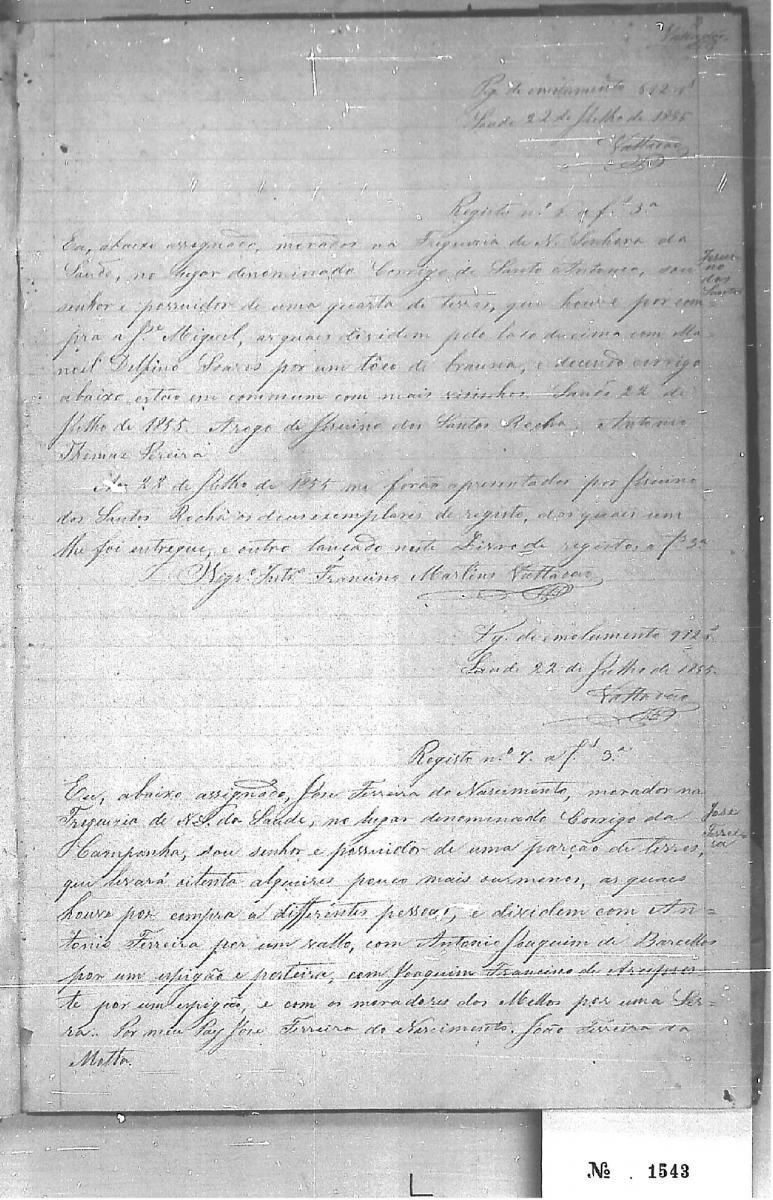 Pg. de emolumento 612 r.s
Saude 22 de Julho de 1855
Vallladão
Registo n.º 6. a f.s 3.ª
Eu, abaixo assignado, morador na Freguezia de N. Senhora da
Saude, no lugar denominado Corrego de Santo Antonio, sou
senhor e possuidor de uma quarta de terras, que houve por com=
pra a J.e Miguel, as quaes dividem pelo lado de cima com Ma=
noel Delfino Soares por um tôco de brauna, e decendo corrigo
abaixo, estão em commum com mais visinhos. Saude 22 de
Julho de 1855. A rogo de Jesuino dos Santos Rocha, Antonio
Thomaz Pereira
Jesui=
no dos
Santos
Ao 22 de Julho de 1855 me forão apresentados por Jesuino
dos Santos Rocha os dous exemplares de registo, dos quais um
lhe foi entregue, e outro lançado neste Livro de registos a f.s 3.ª
Vigr.º Francino Martins
Pg. de emolumento 912 r.s
Saude 22 de Julho de 1855.
Registo n.º 7. a f.s 3.ª
Eu, abaixo assignado, José Ferreira do Nascimento, morador na
Freguezia de N.S. da Saude, no lugar denominado Corrigo da
Campanha, sou senhor e possuidor de uma parção de terras,
que levará oitenta alqueires pouco mais ou menos, as quaes
houve por compra a differentes pessoas, e dividem com An=
tonio Ferreira por um vallo, com Antonio Joaquim de Barcellos
por um espigão e porteira, com Joaquim Francino de
te por um espigão, e com os moradores dos Mellos por uma Ser=
ra. Por meu Pay José Ferreira do Nascimento, João Ferreira da
Motta.
José
Ferrei=
ra
Nº 1543